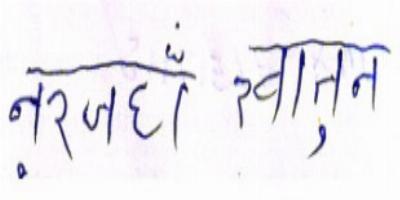 नुरजहाँ खातुन